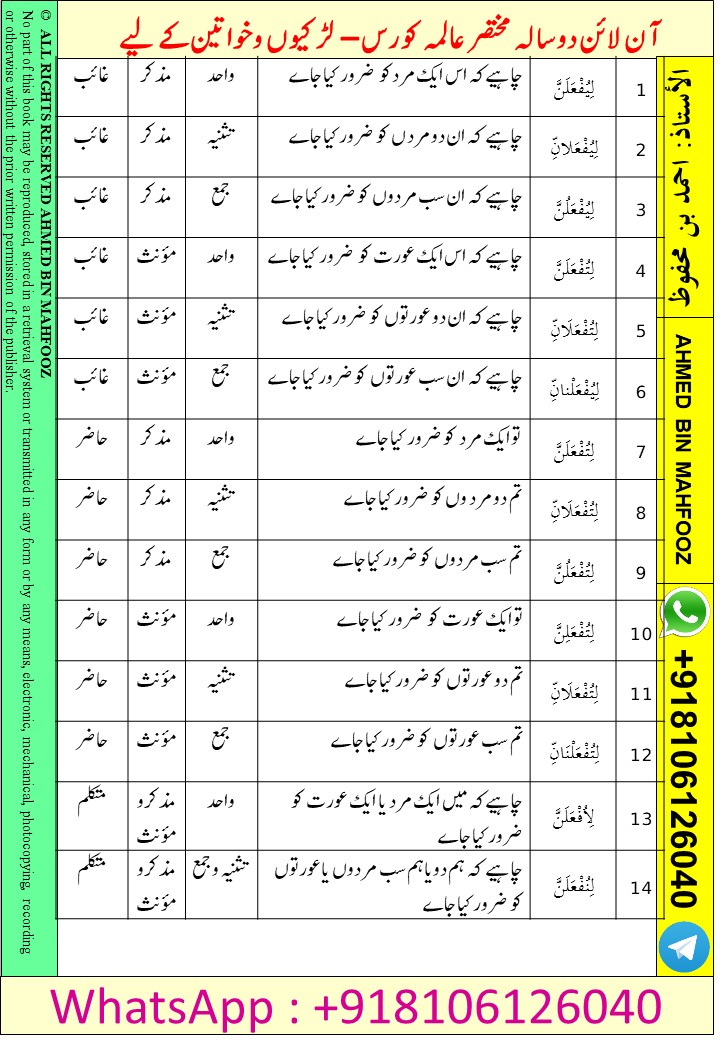 آن لائن دو سالہ مختصر عالمہ کورس – لڑکیوں و خواتین کے لیے
1 لِيُفْعَلَنَّ چاہیے کہ اس ایک مرد کو ضرور کیا جاے واحد مذکر غائب
2 لِيُفْعَلَانِّ چاہیے کہ ان دو مردں کو ضرور کیا جاے تثنیہ مذکر غائب
3 لِيُفْعَلُنَّ چاہیے کہ ان سب مردوں کو ضرور کیا جاے جمع مذکر غائب
4 لِتُفْعَلَنَّ چاہیے کہ اس ایک عورت کو ضرور کیا جاے واحد مؤنث غائب
5 لِتُفْعَلَانِّ چاہیے کہ ان دو عورتوں کو ضرور کیا جاے تثنیہ مؤنث غائب
6 لِيُفْعَلْنانِّ چاہیے کہ ان سب عورتوں کو ضرور کیا جاے جمع مؤنث غائب
7 لِتُفْعَلَنَّ تو ایک مرد کو ضرور کیا جاے واحد مذکر حاضر
8 لِتُفْعَلَانِّ تم دو مردوں کو ضرور کیا جاے تثنیہ مذکر حاضر
9 لِتُفْعَلُنَّ تم سب مردوں کو ضرور کیا جاے جمع مذکر حاضر
10 لِتُفْعَلِنَّ تو ایک عورت کو ضرور کیا جاے واحد مؤنث حاضر
11 لِتُفْعَلَانِّ تم دو عورتوں کو ضرور کیا جاے تثنیہ مؤنث حاضر
12 لِتُفْعَلْنَانِّ تم سب عورتوں کو ضرور کیا جاے جمع مؤنث حاضر
13 لِأُفْعَلَنَّ چاہیے کہ میں ایک مرد یا ایک عورت کو واحد مذکر و متکلم
ضرور کیا جاے مؤنث
14 لِنُفْعَلَنَّ چاہیے کہ ہم دو یا ہم سب مردوں یا عورتوں تثنیہ و جمع مذکر و متکلم
کو ضرور کیا جاے مؤنث
الأستاذ: احمد بن محفوظ
AHMED BIN MAHFOOZ
+918106126040
© ALL RIGHTS RESERVED AHMED BIN MAHFOOZ
No part of this book may be reproduced, stored in a retrieval system or transmitted in any form or by any means, electronic, mechanical, photocopying, recording
or otherwise without the prior written permission of the publisher.
WhatsApp : +918106126040